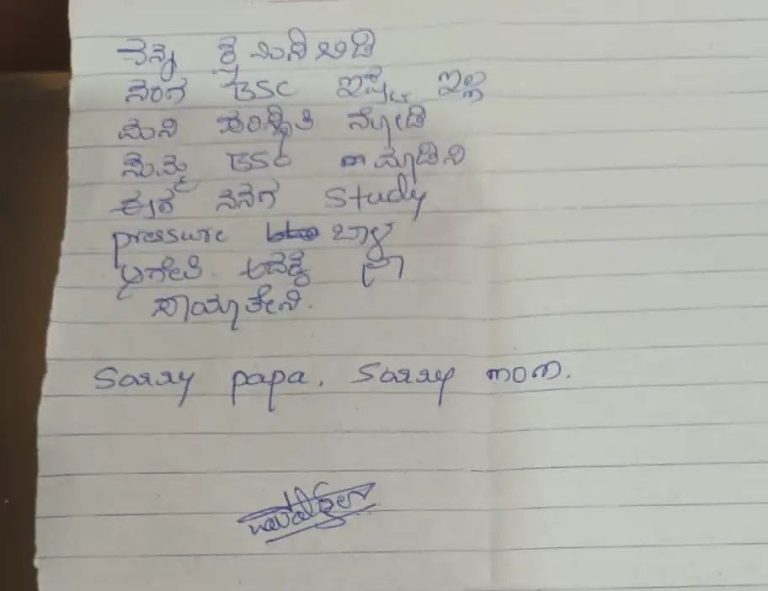 ನನ್ನ ಕ್ಷಮಿಸಿ ಬಿಡಿ
ನಂಗ BSC ಇಷ್ಟ ಇಲ್ಲ
ಮನಿ ಪರಿಸ್ಥಿತಿ ನೋಡಿ
ಸುಮ್ನ BSC ಮಾಡಿನಿ
ಈಗ ನನಗ Study
pressure ಬಾಳ
ಆಗೇತಿ ಅದಕ್ಕೆ ನಾ
ಸಾಯಾತೇನಿ.
Sorry papa, Sorry mom.